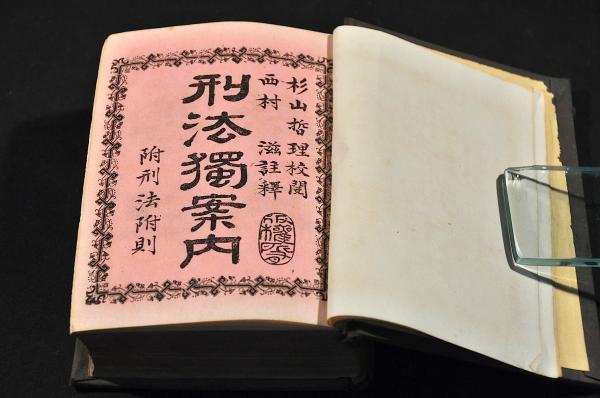 杉山哲理校閲
西村滋註釋
刑法獨案内
附刑法附則